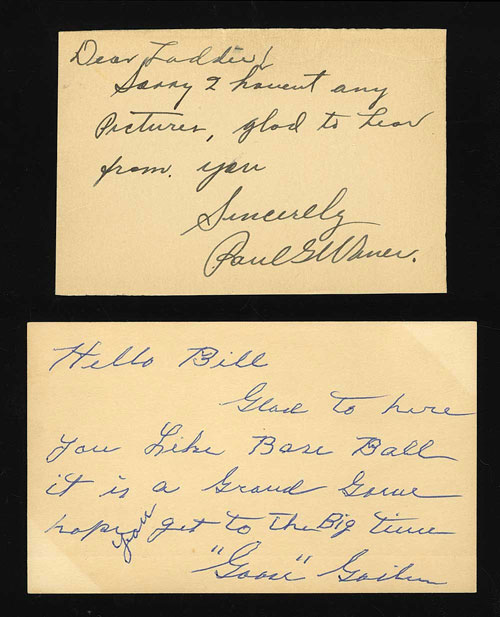 Dear Laddie!
Sorry I havent any
Pictures, glad to hear
from. you
Sincerely
Paul G Waner.
Hello Bill
Glad to here
you Like Base Ball
it is a Grand Game
hope you get to the Big time
"Goose" Goslin